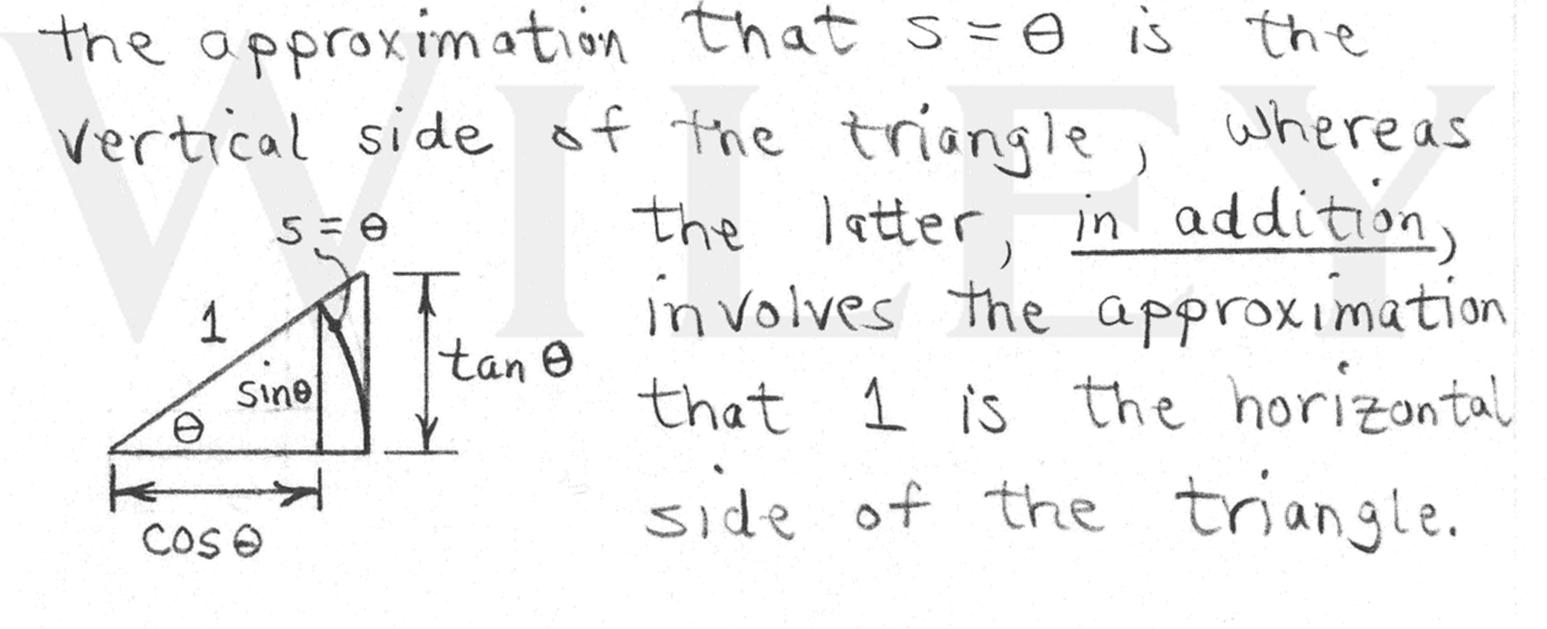 the approximation that s = θ is the
vertical side of the triangle, whereas
the latter, in addition,
involves the approximation
that 1 is the horizontal
side of the triangle.
s = θ
1
sinθ
θ
tan θ
cos θ
WILEY